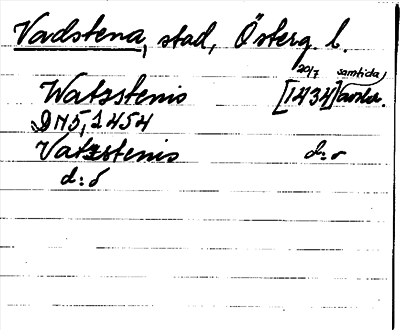 Vadstena, stad, Österg. l.
20/7 samtida
Watzstenis [1434] avskr.
D 115, 1454
Vatzstenis d:o
d:o